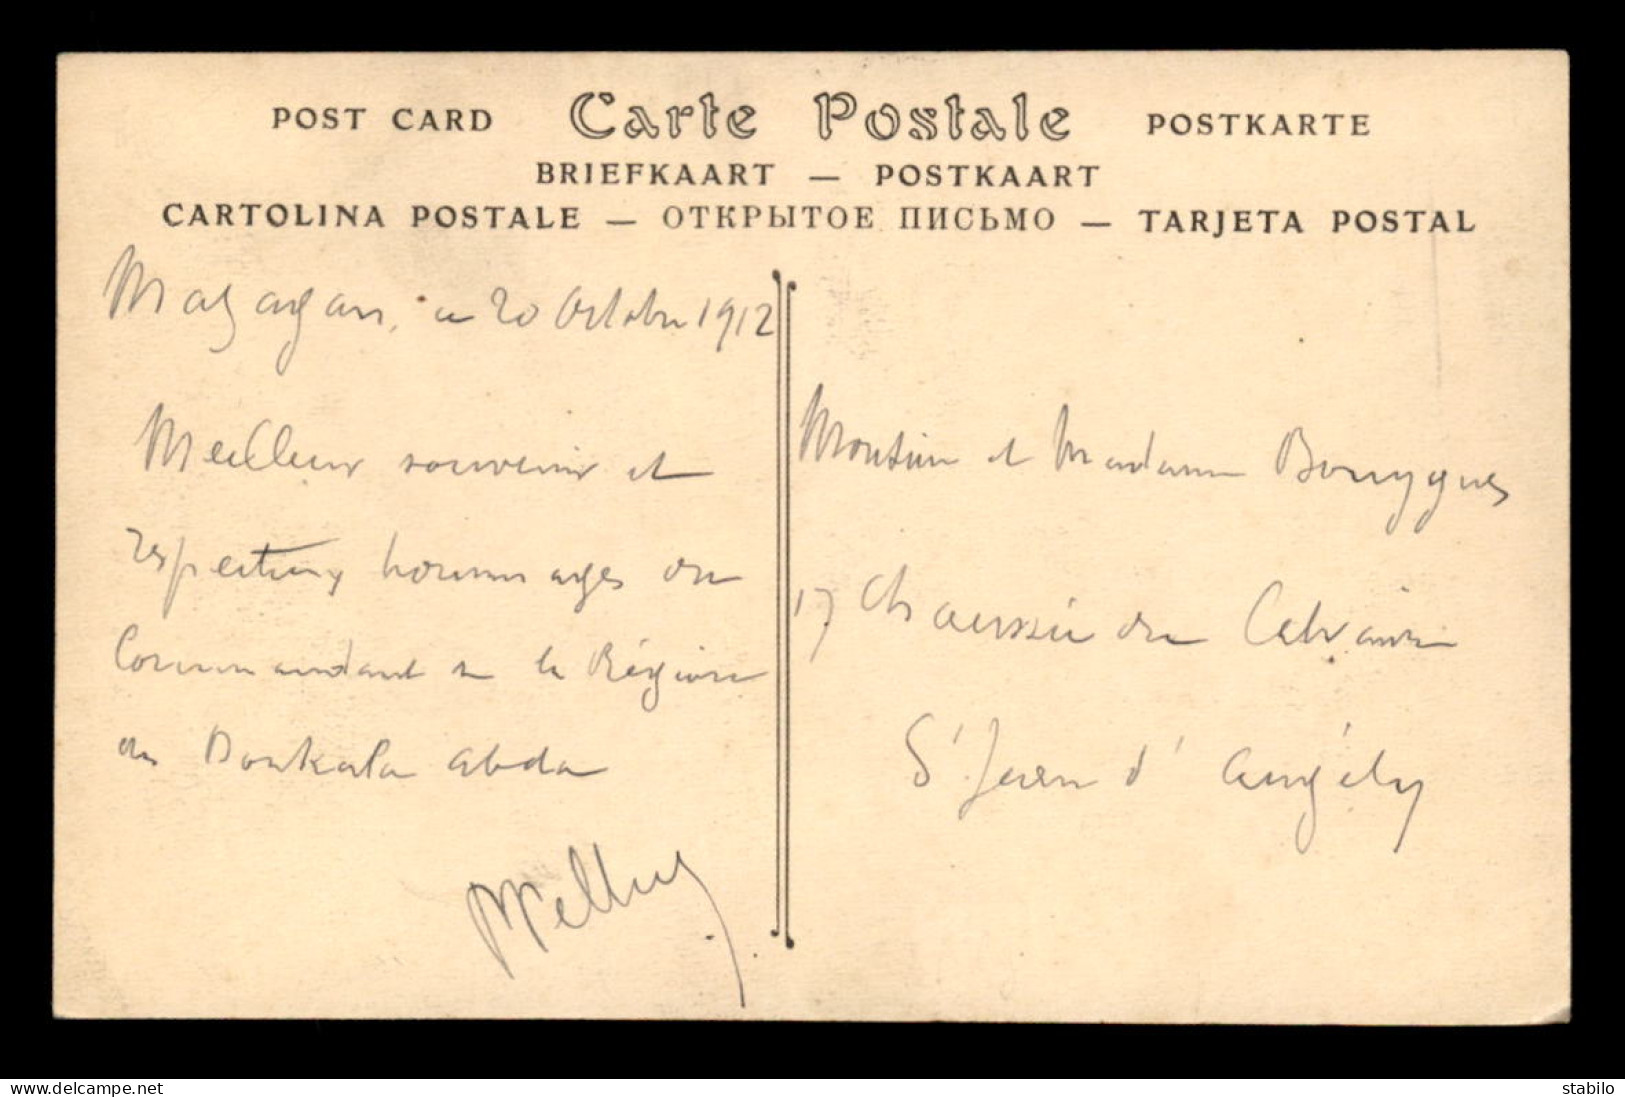 POST CARD Carte Postale POSTKARTE
BRIEFKAART — POSTKAART
CARTOLINA POSTALE — ОТКРЫТОЕ ПИСЬМО — TARJETA POSTAL
Mazagan, le 20 Octobre 1912
Meilleur souvenir et
respectueux hommages du
Commandant de la Région
des Doukala Abda
Monsieur et Madame Bouygues
17 Chaussée du Calvaire
St Jean d'Angély
www.delcampe.net
stabilo